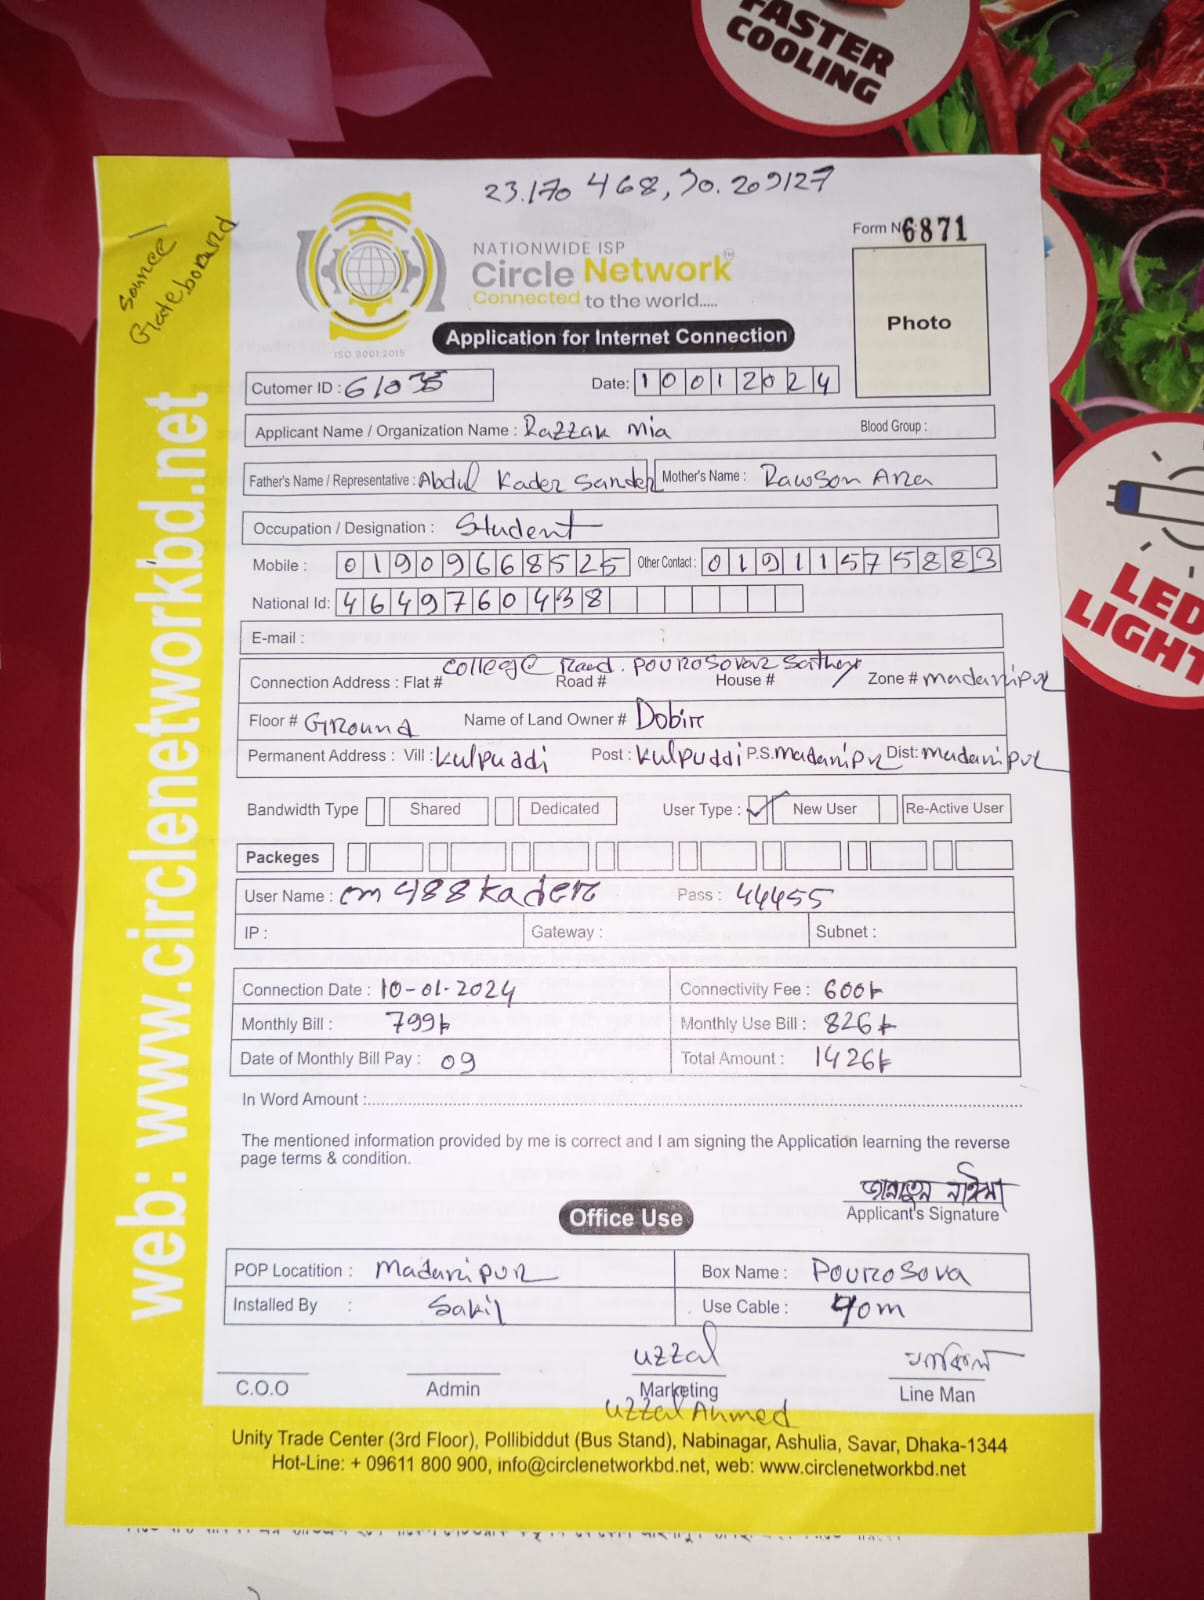 FASTER
COOLING
23.170 468, 90.209127
Source
Plateboard
Form No 6871
NATIONWIDE ISP
Circle Network
Connected to the world.....
ISO 9001:2015
Application for Internet Connection
Photo
Cutomer ID : 61035
Date: 10012024
Applicant Name / Organization Name : Razzak mia
Blood Group :
Father's Name / Representative : Abdul Kader Sander
Mother's Name : Rawson Ara
Occupation / Designation : Student
Mobile : 01909668525 Other Contact : 01911575883
National Id: 4649760438
E-mail :
Connection Address : Flat # College Road. Pourosovar Road # House # Zone # madaripur
Floor # Ground Name of Land Owner # Dobir
Permanent Address : Vill : kulpuddi Post : kulpuddi P.S. madaripur Dist: madaripur
Bandwidth Type Shared Dedicated User Type : ✓ New User Re-Active User
Packeges
User Name : cm488kader Pass : 44455
IP : Gateway : Subnet :
Connection Date : 10-01-2024 Connectivity Fee : 600৳
Monthly Bill : 799৳ Monthly Use Bill : 826৳
Date of Monthly Bill Pay : 09 Total Amount : 1426৳
In Word Amount :
The mentioned information provided by me is correct and I am signing the Application learning the reverse
page terms & condition.
Applicant's Signature
Office Use
POP Locatition : Madaripur Box Name : Pourosova
Installed By : Sakil Use Cable : 90m
uzzal
C.O.O Admin Marketing Line Man
uzzal Ahmed
Unity Trade Center (3rd Floor), Pollibiddut (Bus Stand), Nabinagar, Ashulia, Savar, Dhaka-1344
Hot-Line: + 09611 800 900, info@circlenetworkbd.net, web: www.circlenetworkbd.net
web: www.circlenetworkbd.net
LED
LIGHT